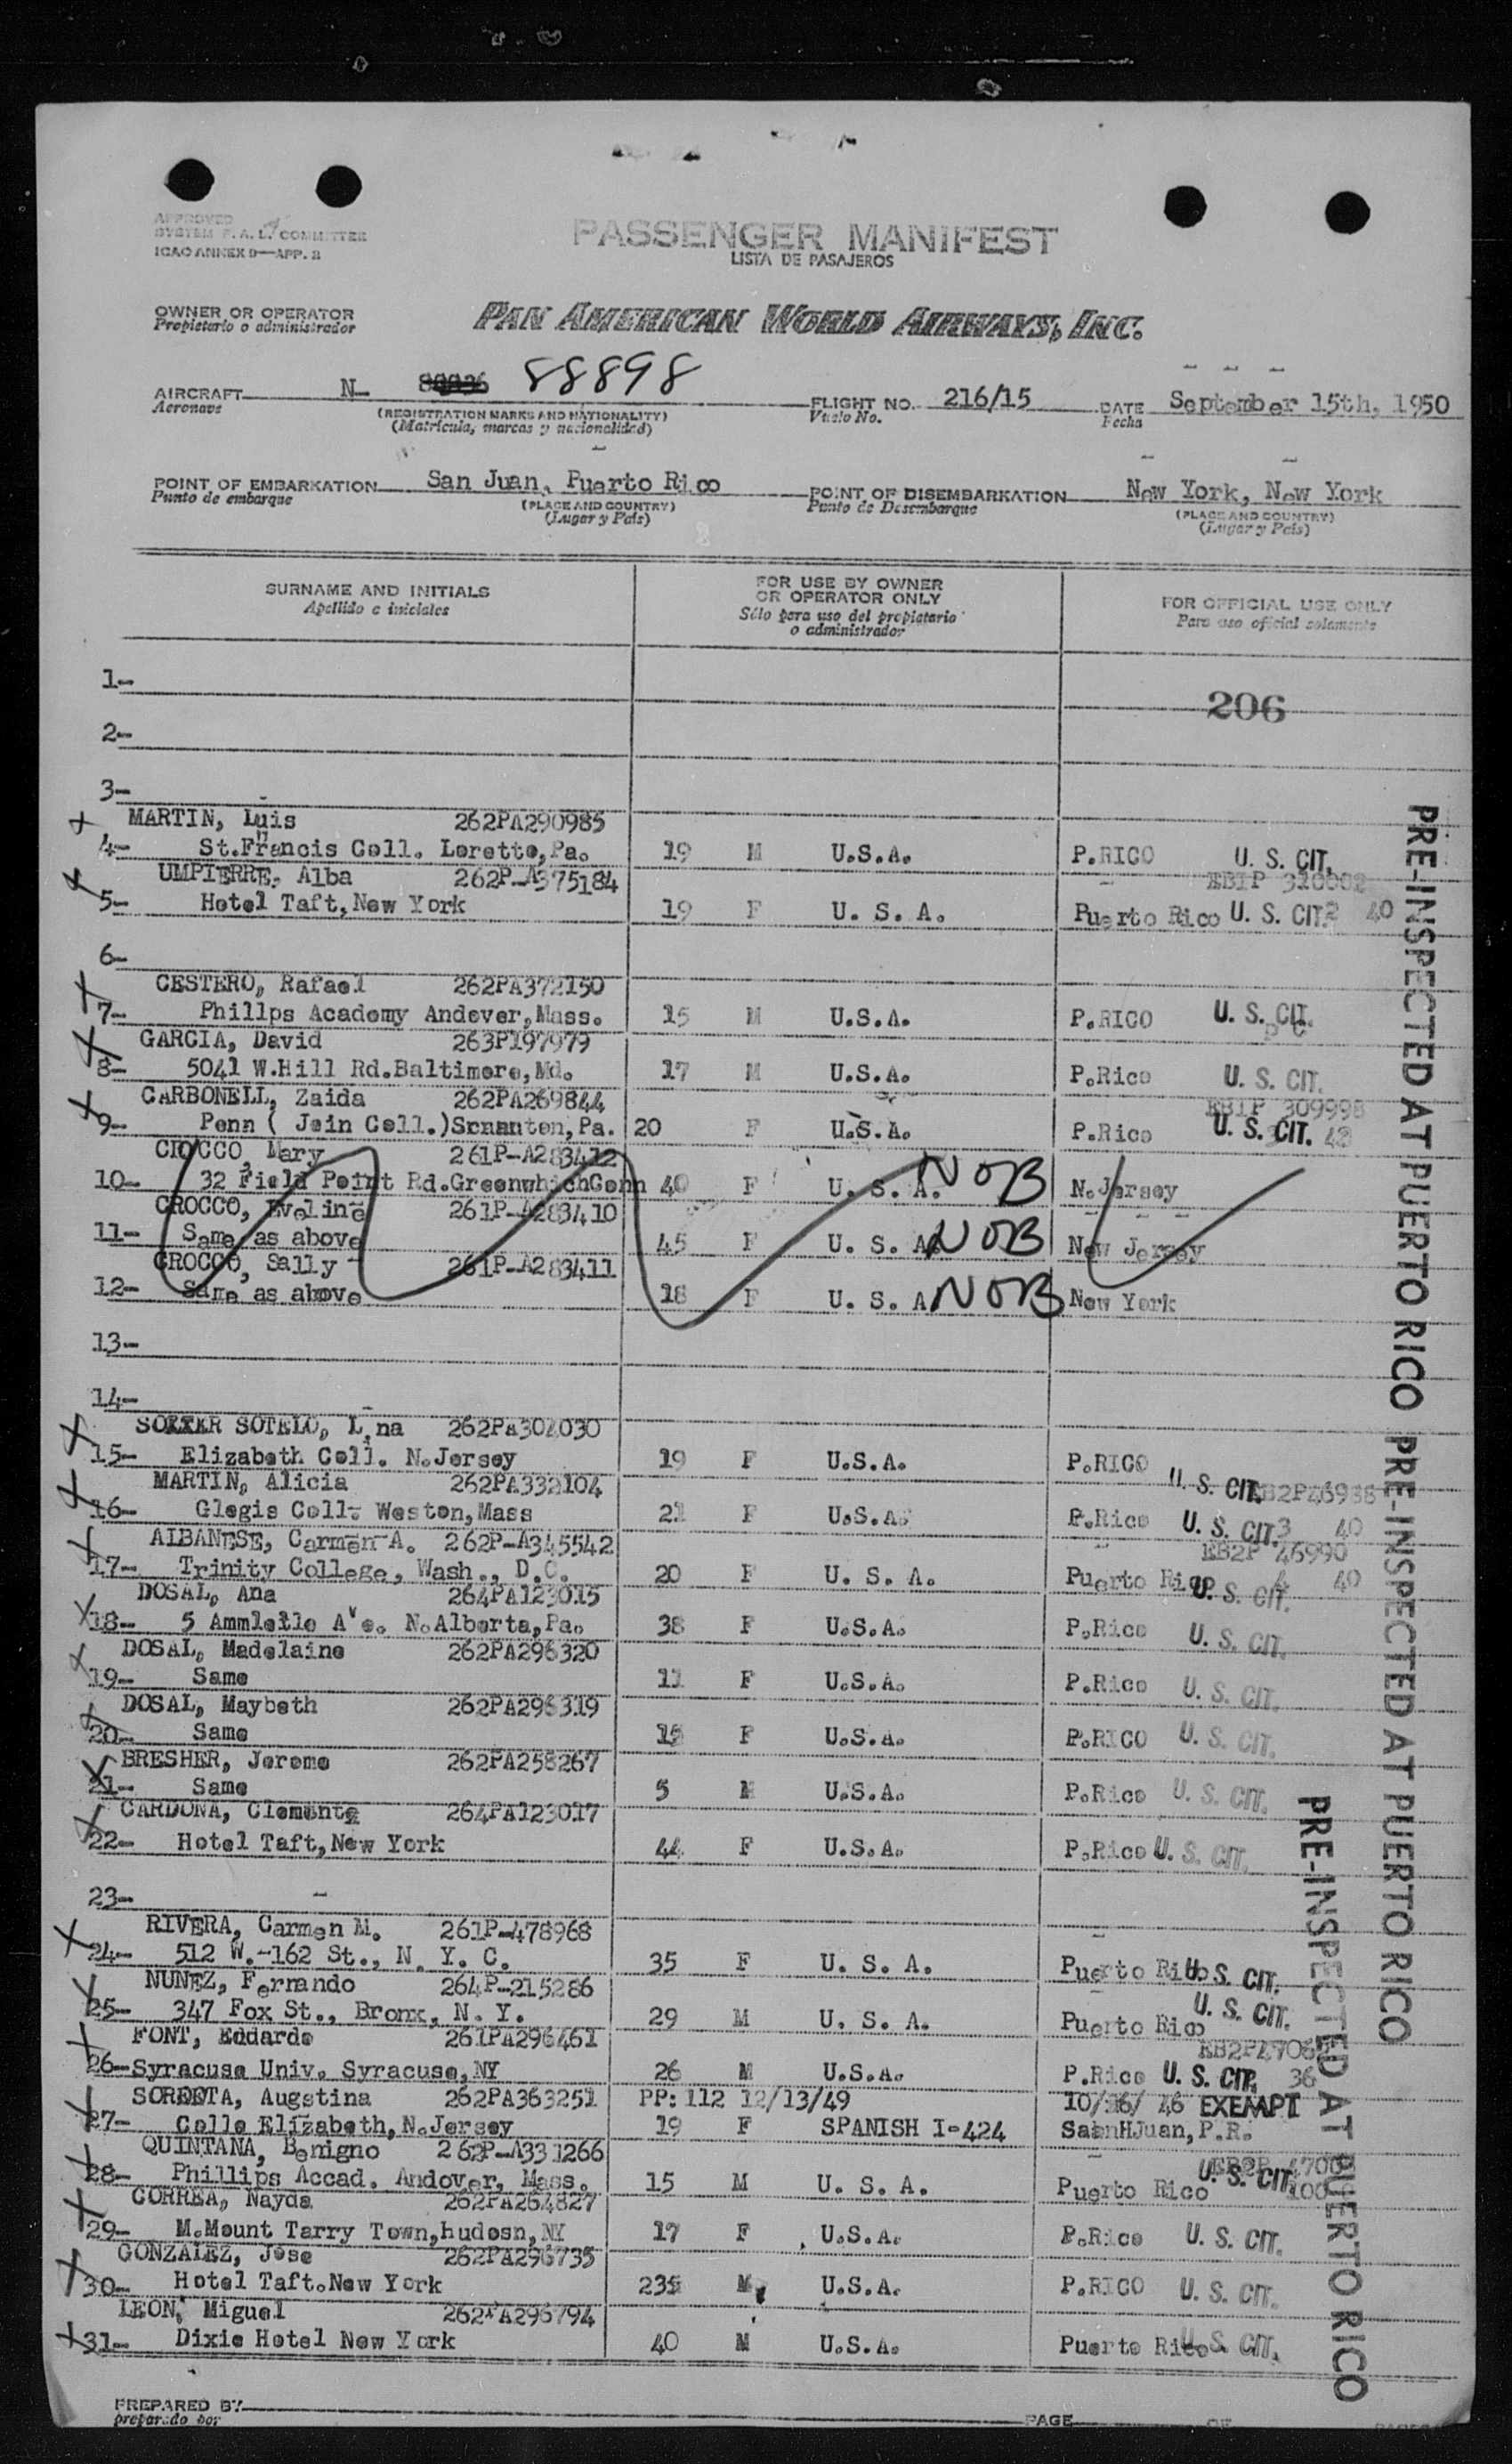 APPROVED
SYSTEM F. A. L. COMMITTEE
ICAO ANNEX 9—APP. 2
PASSENGER MANIFEST
LISTA DE PASAJEROS
OWNER OR OPERATOR
Propietario o administrador
PAN AMERICAN WORLD AIRWAYS, INC.
AIRCRAFT N- 88898
Aeronave
(REGISTRATION MARKS AND NATIONALITY)
(Matrícula, marcas y nacionalidad)
FLIGHT NO. 216/15
Vuelo No.
DATE September 15th, 1950
Fecha
POINT OF EMBARKATION San Juan, Puerto Rico
Punto de embarque
(PLACE AND COUNTRY)
(Lugar y País)
POINT OF DISEMBARKATION New York, New York
Punto de Desembarque
(PLACE AND COUNTRY)
(Lugar y País)
SURNAME AND INITIALS
Apellido e iniciales
FOR USE BY OWNER
OR OPERATOR ONLY
Sólo para uso del propietario
o administrador
FOR OFFICIAL USE ONLY
Para uso oficial solamente
1-
206
2-
3-
MARTIN, Luis 262PA290985
4- St.Francis Coll. Loretto,Pa. 19 M U.S.A. P.RICO U. S. CIT.
UMPIERRE, Alba 262P-A375184
5- Hotel Taft,New York 19 F U. S. A. Puerto Rico U. S. CIT. 40
6-
CESTERO, Rafael 262PA372150
7- Phillps Academy Andover,Mass. 15 M U.S.A. P.RICO U. S. CIT.
GARCIA, David 263P197979
8- 5041 W.Hill Rd.Baltimore,Md. 17 M U.S.A. P.Rico U. S. CIT.
CARBONELL, Zaida 262PA269844 EB1P 309998
9- Penn ( Join Coll.)Scranton,Pa. 20 F U.S.A. P.Rico U. S. CIT.
CIOCCO, Mary 261P-A283412
10- 32 Field Point Rd.GreenwhichConn 40 F U. S. A. NOB N.Jersey
CROCCO, Eveline 261P-A283410
11- Same as above 45 F U. S. A NOB New Jersey
CROCCO, Sally 261P-A283411
12- Same as above 18 F U. S. A NOB New York
13-
14-
SOLTER SOTELO, L,na 262PA304030
15- Elizabeth Coll. N.Jersey 19 F U.S.A. P.RICO U. S. CIT.
MARTIN, Alicia 262PA332104
16- Glegis Coll. Weston,Mass 21 F U.S.A. P.Rico U. S. CIT. 40
ALBANESE, Carmen A. 262P-A345542 EB2P 46990
17- Trinity College, Wash., D.C. 20 F U. S. A. Puerto Rico U. S. CIT. 40
DOSAL, Ana 264PA123015
18- 5 Ammletlo Ave. N.Alberta,Pa. 38 F U.S.A. P.Rico U. S. CIT.
DOSAL, Madelaine 262PA296320
19- Same 11 F U.S.A. P.Rico U. S. CIT.
DOSAL, Maybeth 262PA296319
20- Same F U.S.A. P.RICO U. S. CIT.
BRESHER, Jerome 262PA258267
21- Same 5 M U.S.A. P.Rico U. S. CIT.
CARDONA, Clemente 264PA123017
22- Hotel Taft,New York 44 F U.S.A. P.Rico U. S. CIT.
23-
RIVERA, Carmen M. 261P-478968
24- 512 W.-162 St., N. Y. C. 35 F U. S. A. Puerto Rico U. S. CIT.
NUNEZ, Fernando 264P-215286
25- 347 Fox St., Bronx, N. Y. 29 M U. S. A. Puerto Rico U. S. CIT.
FONT, Eduardo 261PA296461
26- Syracuse Univ. Syracuse,NY 26 M U.S.A. P.Rico U. S. CIT. 36
Augstina 262PA363251 PP: 112 12/13/49 EXEMPT
27- Colle Elizabeth,N.Jersey 19 F SPANISH I-424 Juan, P.R.
QUINTANA, Benigno 262P-A331266
28- Phillips Accad. Andover, Mass. 15 M U. S. A. Puerto Rico U. S. CIT. 100
CORREA, Nayda 262PA264827
29- M.Mount Tarry Town,hudosn,NY 17 F U.S.A. P.Rico U. S. CIT.
GONZALEZ, Jose 262PA296735
30- Hotel Taft.New York M U.S.A. P.RICO U. S. CIT.
LEON, Miguel 262PA296794
31- Dixie Hotel New York 40 M U.S.A. Puerto Rico U. S. CIT.
PRE-INSPECTED AT PUERTO RICO
PRE-INSPECTED AT PUERTO RICO
PRE-INSPECTED AT PUERTO RICO
PREPARED BY
preparado por
PAGE OF